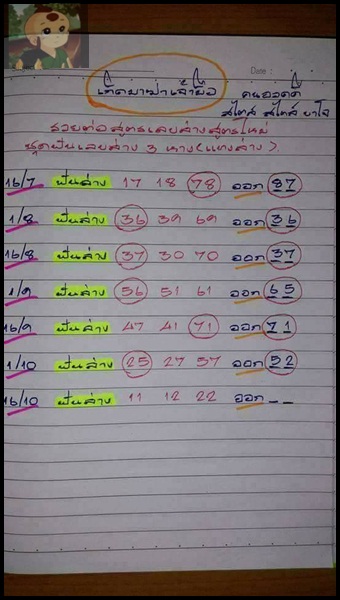 Date :
เกิดมาฆ่าเจ้ามือ คนอวดดี
สไตส์ สไตส์ ยาใจ
รวยต่อสูตรเลขล่างสูตรใหม่
ชุดฟันเลขล่าง 3 หาง (แทงล่าง).
16/7 ฟันล่าง 17 18 78 ออก 87
1/8 ฟันล่าง 36 39 69 ออก 36
16/8 ฟันล่าง 37 30 70 ออก 37
1/9 ฟันล่าง 56 51 61 ออก 65
16/9 ฟันล่าง 47 41 71 ออก 71
1/10 ฟันล่าง 25 27 57 ออก 52
16/10 ฟันล่าง 11 12 22 ออก _ _